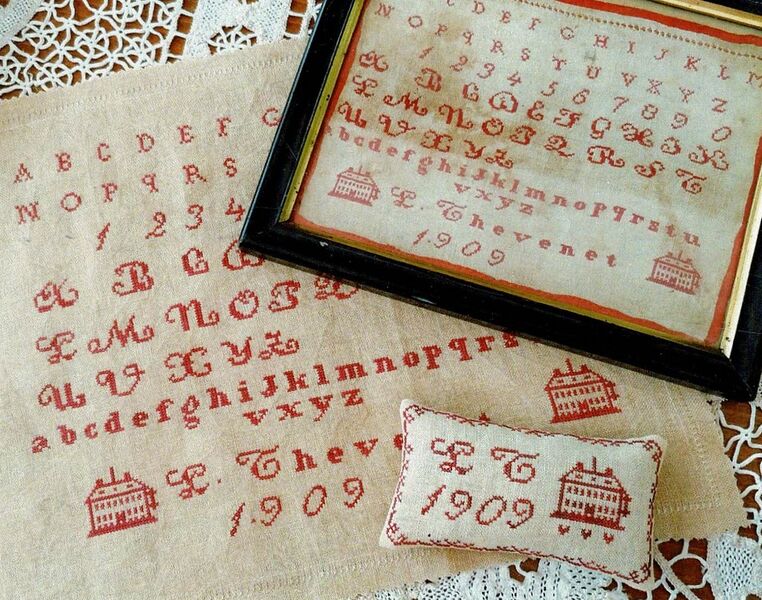 A B C D E F G
N O P q R S
1 2 3 4
A B C D
L M N O P Q
U V X Y Z
abcdefghiJklmnopqrs
vxyz
L. Theve t
1909
C D E F G H I J K L M
N O P q R S T U V X Y Z
1 2 3 4 5 6 7 8 9 0
A B C D E F G H I K
L M N O P Q R S T
U V X Y Z
abcdefghiJklmnopqrstu
vxyz
L. Thevenet
1909
L T
1909